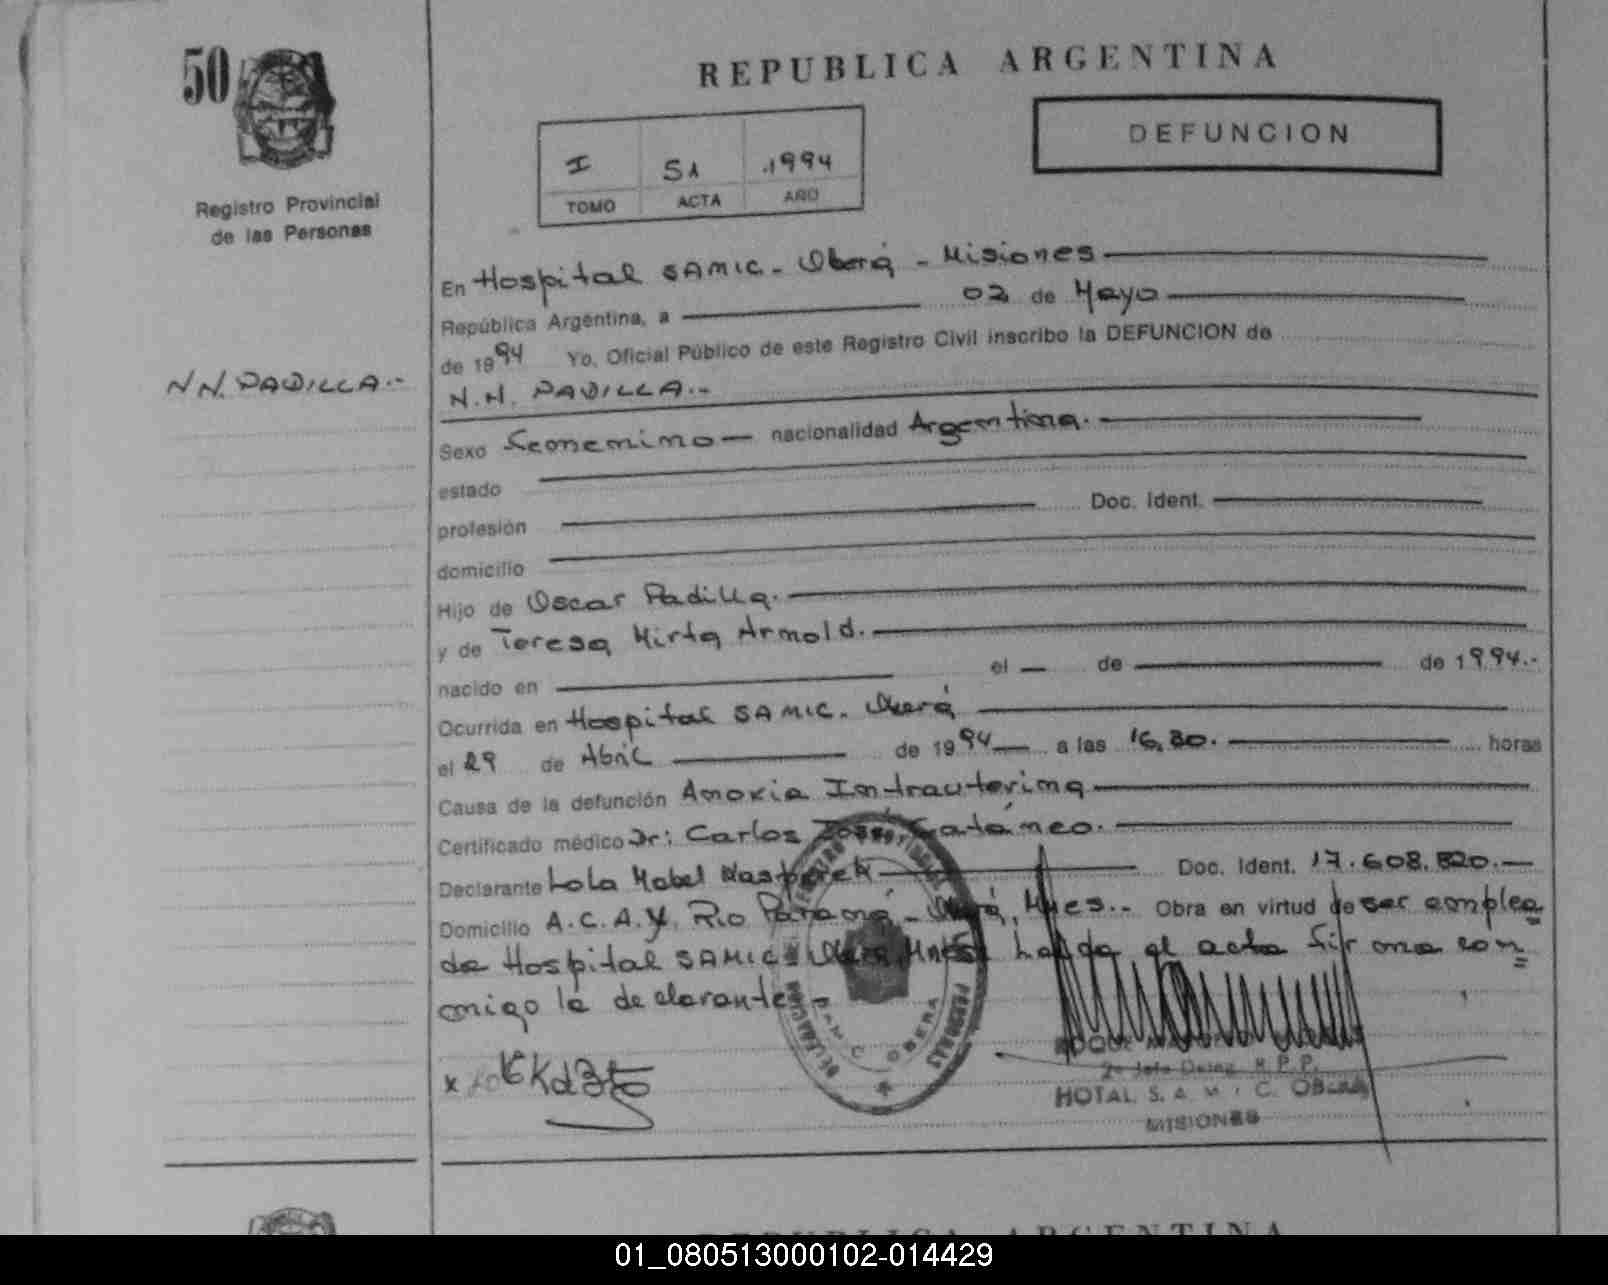 50
REPUBLICA ARGENTINA
DEFUNCION
I 51 1994
TOMO ACTA AÑO
Registro Provincial
de las Personas
En Hospital SAMIC - Oberá - Misiones
República Argentina, a 02 de Mayo
de 1994 Yo, Oficial Público de este Registro Civil inscribo la DEFUNCION de
NN. PADILLA.-
N.N. PADILLA.-
Sexo Femenino nacionalidad Argentina.
estado
profesión Doc. Ident.
domicilio
Hijo de Oscar Padilla.
y de Teresa Mirta Arnold.
nacido en el de de 1994.-
Ocurrida en Hospital SAMIC. Oberá
el 29 de Abril de 1994 a las 16,30. horas
Causa de la defunción Anoxia Intrauterina
Certificado médico Dr: Carlos José
Declarante Lola Mabel Doc. Ident. 17.608.820.-
Domicilio A.C.A.y. Rio Paraná - Oberá, Mnes.- Obra en virtud de ser emplea
da Hospital SAMIC Oberá Mnes. Leída el acta firma con
migo la declarante-
REGISTRO PROVINCIAL PERSONAS
DELEGACION
SAMIC OBERA
x
ROQUE
2º Jefe Deleg. R.P.P.
HOTAL. S. A. M. I. C. OBERA
MISIONES
REPUBLICA ARGENTINA
01_080513000102-014429